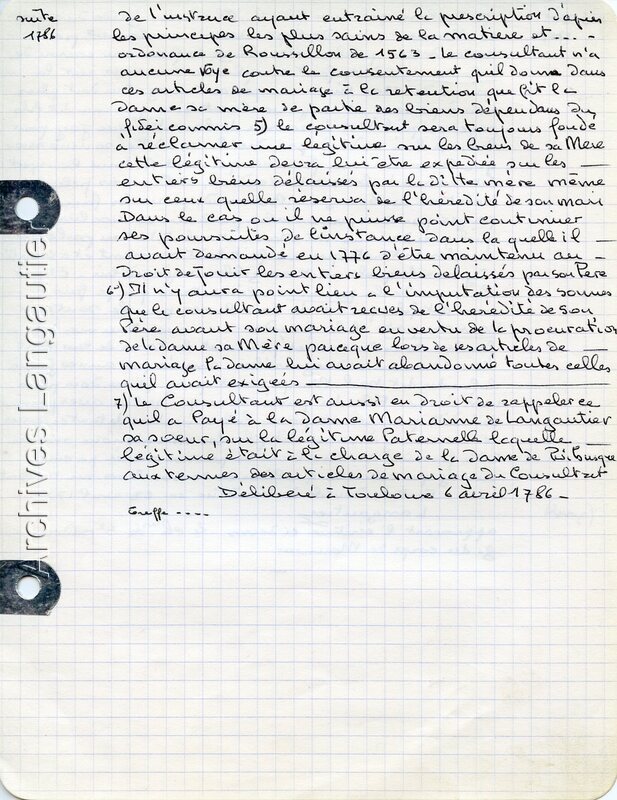 suite
1786
de l'instance ayant entrainé la prescription d'après
les principes les plus sains de la matiere et ... -
ordonance de Roussillon de 1563 - le consultant n'a
aucune voye contre le consentement quil donne dans
ces articles de mariage à la retention que fit la
Dame sa mère de partie des biens dépendans du
fidei commis 5) le consultant sera toujours fondé
à réclamer une légitime sur les biens de sa Mere
cette légitime devra lui être expédiée sur les
entiers biens délaissés par la ditte mère même
sur ceux quelle reserva de l'hérédité de son mari
Dans le cas ou il ne puisse point continuer
ses poursuites de l'instance dans la quelle il
avait demandé en 1776 d'être maintenu au
Droit de jouir les entiers biens delaissés par son Père
6-) Il n'y aura point lieu a l'imputation des somes
que le consultant avait recues de l'heredité de son
Père avant son mariage en vertu de la procuration
de la dame sa Mère parceque lors de ses articles de
mariage la dame lui avait abandonné toutes celles
quil avait exigées
7) Le Consultant est aussi en droit de rappeler ce
quil a Payé à la Dame Marianne de Langautier
sa soeur, sur la légitime Paternelle laquelle
légitime était à la charge de la Dame de
aux termes des articles de mariage du Consultant
Délibéré à Toulouse 6 avril 1786 -
Archives Langautier